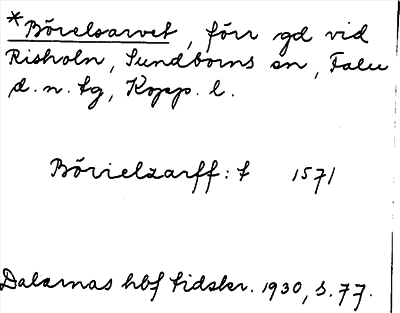 *Börelsarvet, förr gd vid
Risholn, Sundborns sn, Falu
d.n. tg, Kopp. l.
Börielzarff: t 1571
Dalarnas hbf tidskr. 1930, s. 77.